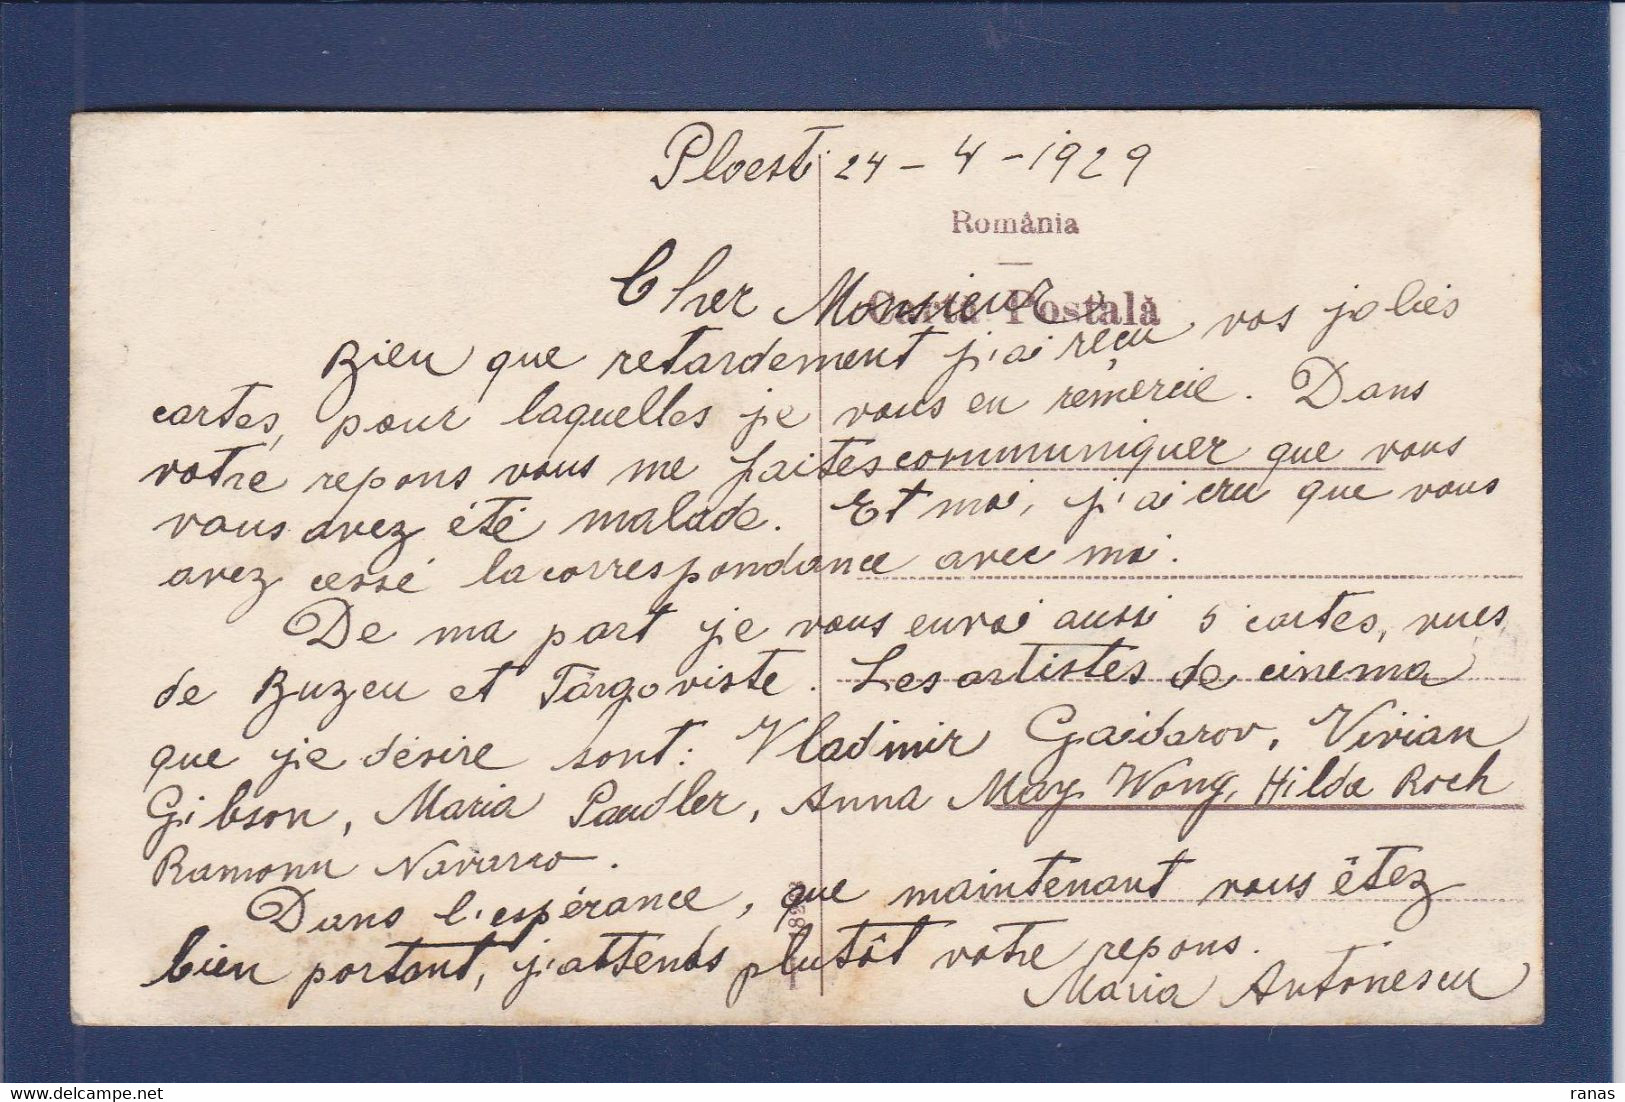 Ploesti 24 - 4 - 1929
România
Carta Postală
Cher Monsieur,
Bien que retardement j'ai reçu vos jolies
cartes, pour laquelles je vous en remercie. Dans
votre repons vous me faites communiquer que vous
vous avez été malade. Et moi, j'ai cru que vous
avez cessé la correspondance avec moi.
De ma part je vous envoi aussi 5 cartes, vues
de Buzeu et Târgoviste. Les artistes de cinema
que je désire sont: Vladimir Gaidarov, Vivian
Gibson, Maria Paudler, Anna May Wong, Hilda Roch
Ramonu Navarro.
Dans l'espérance, que maintenant vous êtez
bien portant, j'attends plutôt votre repons.
Maria Antonescu
ranas